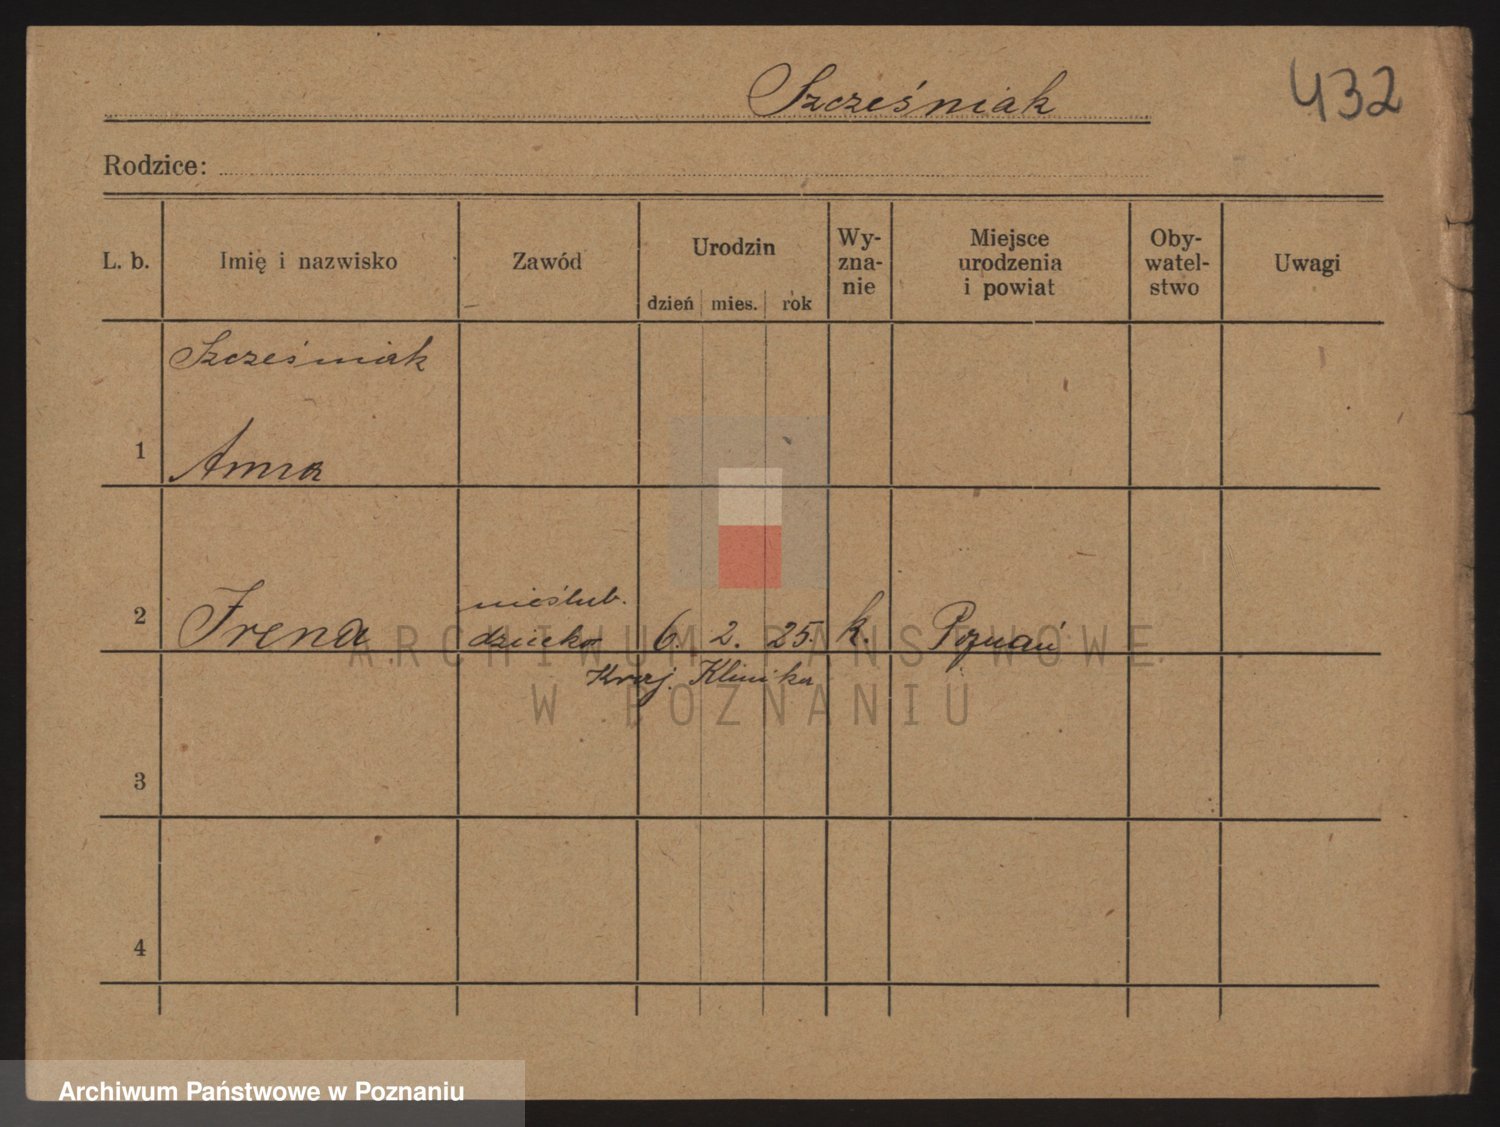 Szcześniak
432
Rodzice:
L. b.
Imię i nazwisko
Zawód
Urodzin
dzień mies. rok
Wy-
zna-
nie
Miejsce
urodzenia
i powiat
Oby-
watel-
stwo
Uwagi
Szcześniak
1 Anna
nieślub.
2 Irena dziecko 6. 2. 25. k. Poznań
Kraj. Klinika
3
4
ARCHIWUM PAŃSTWOWE
W POZNANIU
Archiwum Państwowe w Poznaniu